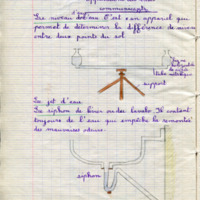 communicants
Le niveau d'eau C'est un appareil qui
permet de déterminer la différence de niveau
entre deux points du sol
tube
métallique
support
Le jet d'eau
Le siphon de évier ou des lavabo Il contient
toujours de l'eau qui empêche la remontée
des mauvaises odeurs.
siphon